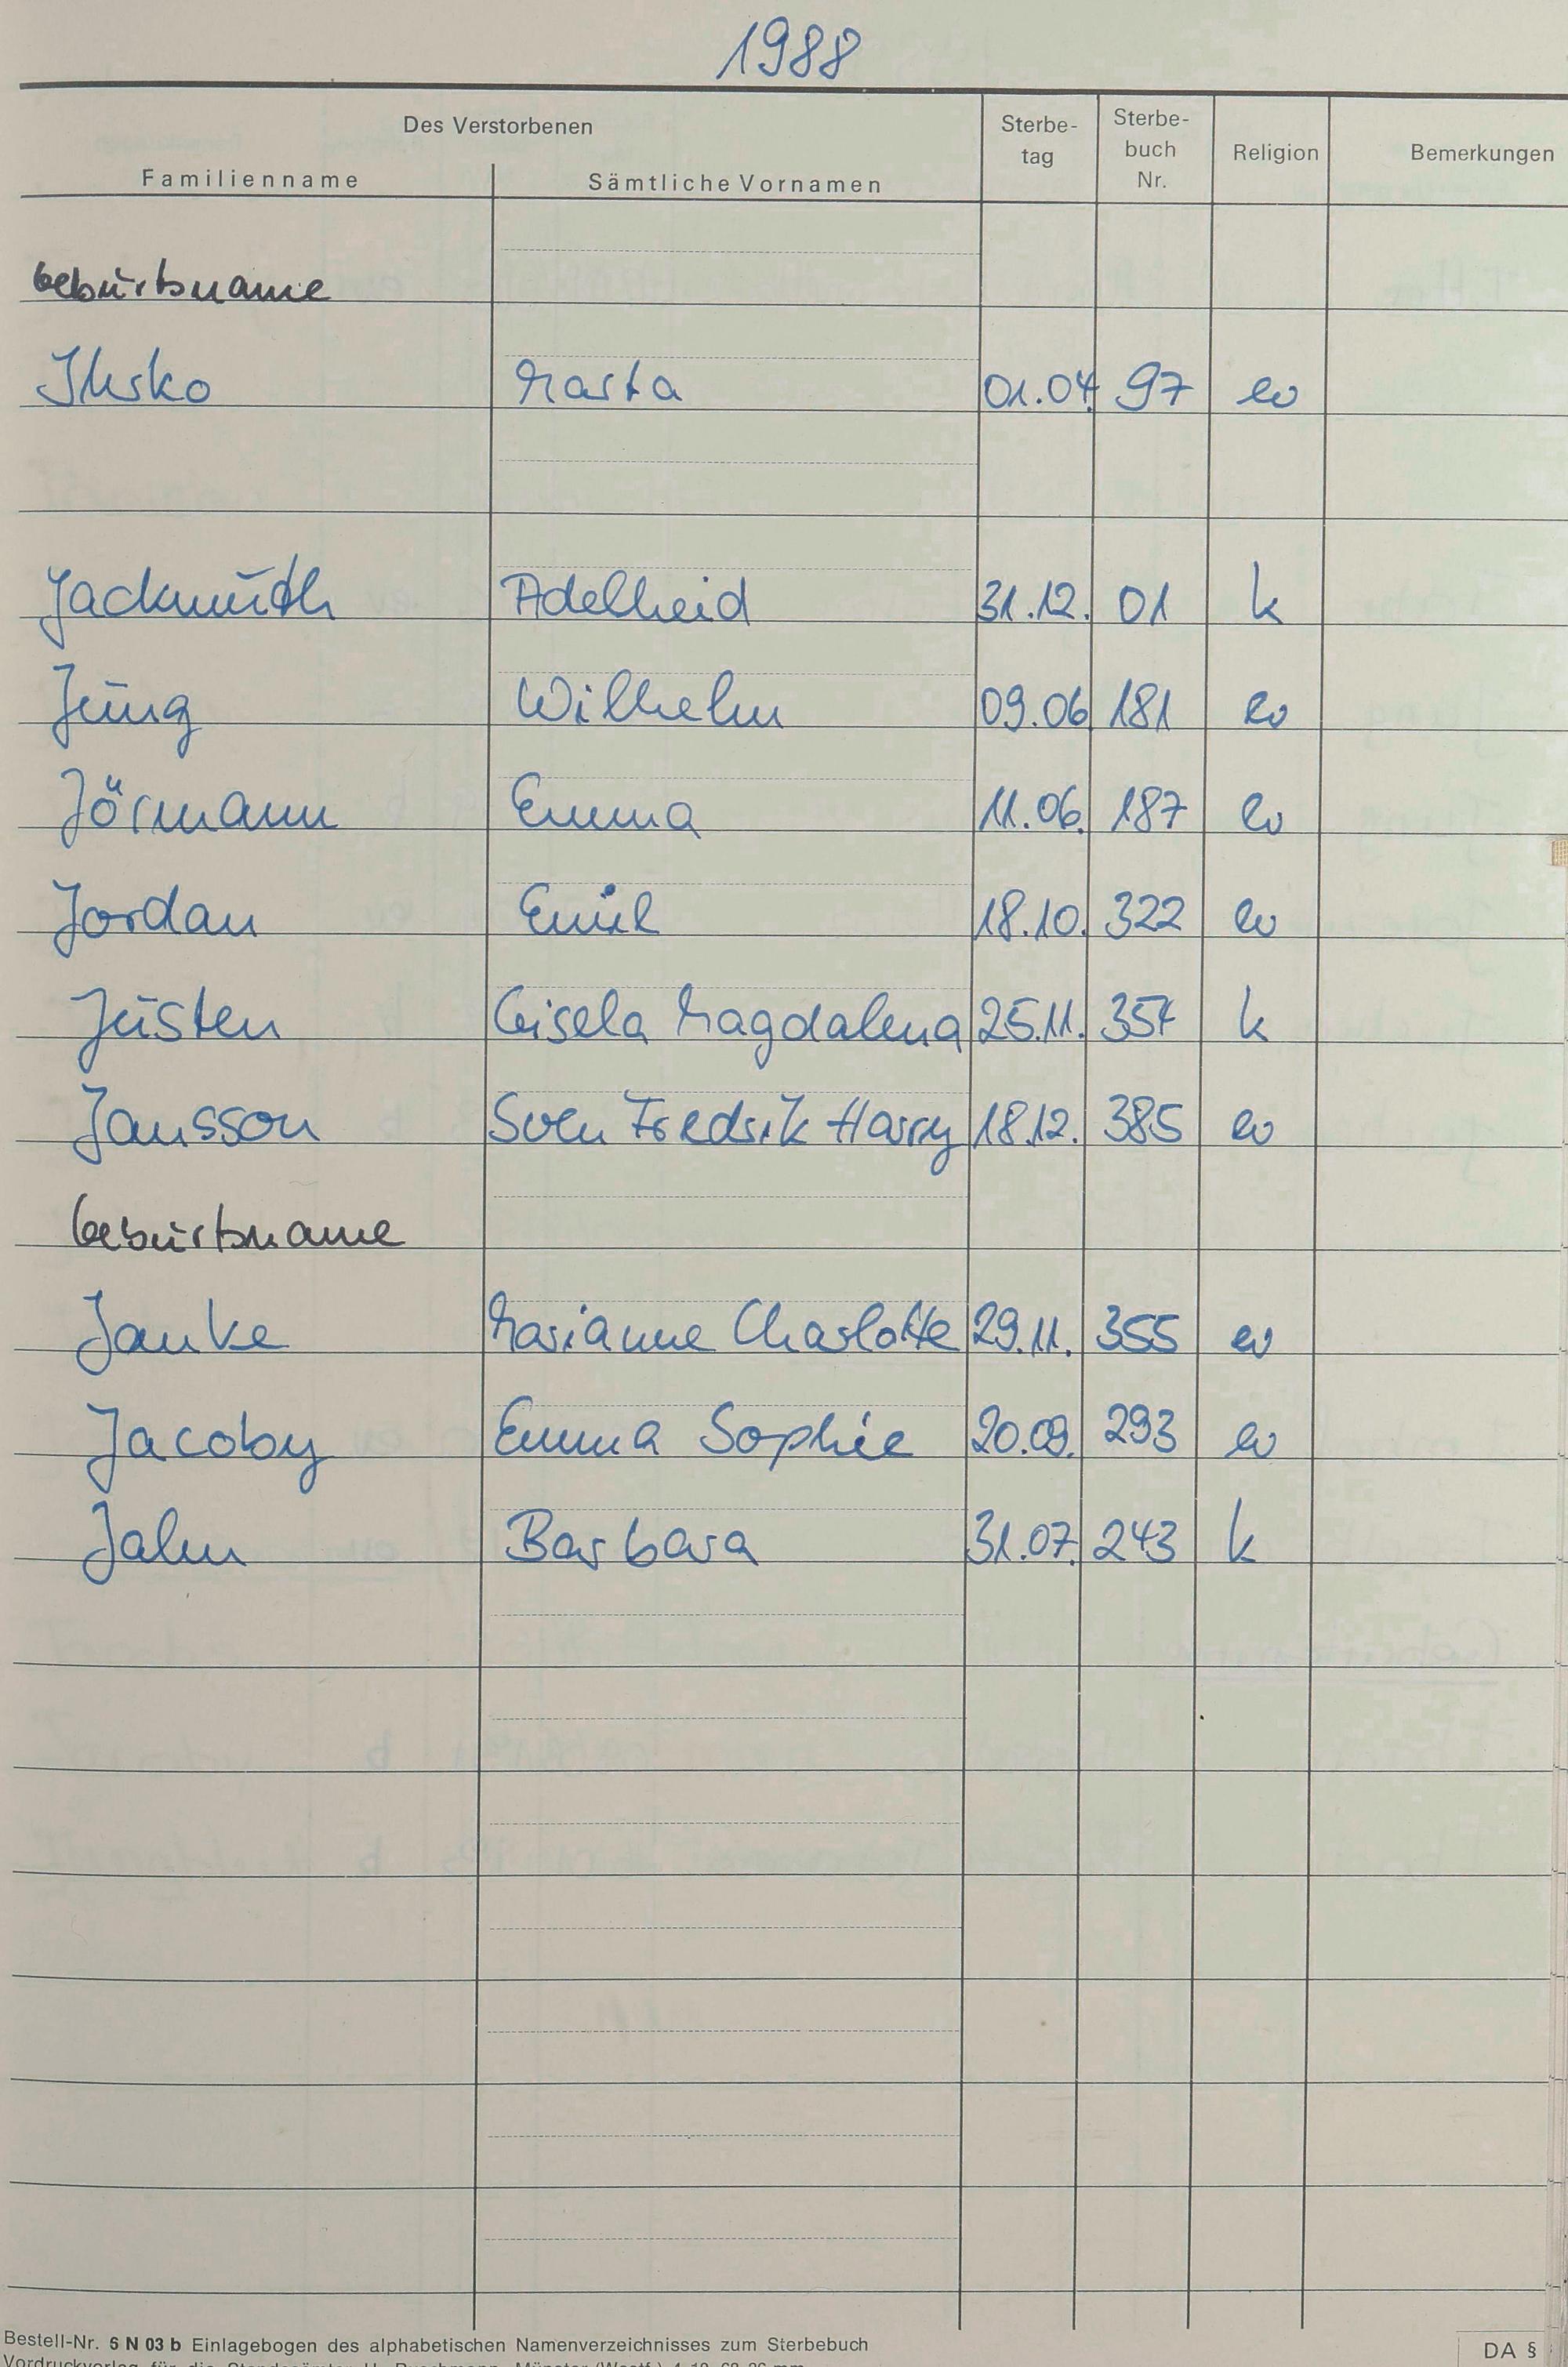 1988
Des Verstorbenen
Familienname Sämtliche Vornamen Sterbe- tag Sterbe- buch Nr. Religion Bemerkungen
Geburtsname
Marta 01.04. 97 ev
Jackmuth Adelheid 31.12. 01 k
Jung Wilhelm 09.06 181 ev
Jörmann Emma 11.06. 187 ev
Jordan Emil 18.10. 322 ev
Justen Gisela Magdalena 25.11. k
Jansson Sven Fredrik Harry 18.12. 385 ev
Geburtsname
Janke Marianne Charlotte 29.11. 355 ev
Jacoby Emma Sophie 20.09. 293 ev
Jahn Barbara 31.07. 243 k
Bestell-Nr. 6 N 03 b Einlagebogen des alphabetischen Namenverzeichnisses zum Sterbebuch
DA §